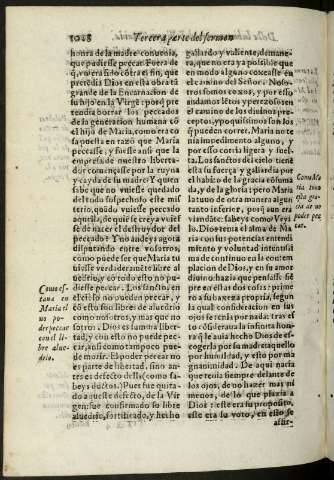 1048 Tercera parte del sermon
honra de la madre conuenia,
que pudiesse peccar. Fuera de
q̃, no era sino cõtra si fin, que
pretendia Dios en esta obra tã
grande de la Encarnacion de
su hijo en la Virgẽ: porq̃ pre
tendia borrar los peccados
de la generacion humana cõ
el hijo de Maria, como era co
sa puesta en razõ que Maria
peccasse: y fuesse ansi que la
empresa de nuestro liberta-
dor començasse por la ruyna
y cayda de su madre? Y quien
sabe que no viuiesse quedado
del todo sospechoso este mis-
terio, quãdo viuiesse peccado
aquella, de quiẽ se creya viuies
se de nacer el destruydor del
peccado? Y no andeys agora
disputando entre vosotros,
como puede ser que Maria tu
uiesse verdaderamẽte libre al
uedrio, y cõ todo esto no pu-
diesse peccar. Los sanctos, en
el cielo no pueden peccar, y
cõ esto son libres de aluedrio
como nosotros, y mas que no
sotros. Dios es summa liber-
tad, y con esto no puede pec-
car, ansi como tampoco pue-
de morir. El poder peccar no
es parte de libertad, sino an-
tes defecto della (como sa-
beys doctos.) Pues fue quita-
do aqueste defecto, de la Vir
gen: fue confirmado su libre
aluedrio, fortificado, y hecho
Como es-
taua en
Maria el
no po-
der peccar
con el li-
bre alue-
drio.
gallardo y valiente, de mane-
ra, que no era ya possible que
en modo alguno coxeasse en
el camino del Señor. Noso-
tros somos coxos, y por esso
andamos lẽtos y perezosos en
el camino de los diuinos pre-
ceptos, y no aquí son los
q̃ pueden correr. Maria no te
nia impedimento alguno, y
por esso corria ligera y suelta.
Los sanctos del cielo tienẽ
esta su fuerça y gallardia por
el habito de la gracia cõsuma
da, y de la gloria: pero Maria
la tuuo de otra manera algun
tanto inferior, porque aun era
viãdante: sabeys como? Veys
lo. Dios tenia el alma de Ma
ria con sus potencias entendi
miento y voluntad intensissi
ma de continuo en la contem
placion de Dios, y en su amor
diuino: hazia que pensasse siẽ
pre en estas dos cosas: prime
ro a su baxeza propria, segun
la qual consideracion en sus
ojos se tenia por nada: tras es
to cõsideraua la infinita hon-
ra q̃ le auia hecho Dios de es-
cogerla por su madre, quello
por humildad, y esto por ma
gnanimidad. De aqui nacia
que tenia siempre delante de
los ojos, de no hazer mas ni
menos, de lo que plazia a
Dios: este era su proposito,
este era su voto, en esto se
Como Ma
ria tuuo
esta gra-
cia de no
poder pec
car.